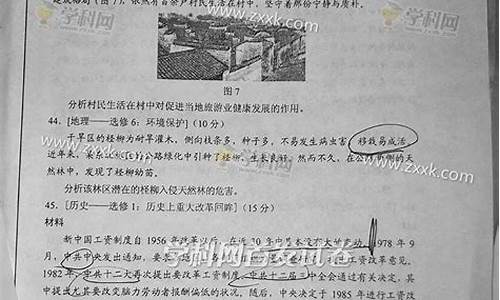 学科网 www.zxxk.com 学科网
建成格局(图7),依然有百余户村民生活在村中,坚守着那份宁静与质朴。
图7
分析村民生活在村中对促进当地旅游业健康发展的作用。
44. [地理——选修6:环境保护](10分)
干旱区的柽柳为耐旱灌木,侧向枝条多,种子多,不易发生病虫害,移栽易成活。
近年来,某
公路绿化中引种了柽柳,生长良好。然而不久,在公路
侧的天
然林中,发现了柽柳幼苗。
分析该林区潜在的柽柳入侵天然林的危害。
www.zxxk.com
45. [历史——选修1:历史上重大改革回眸](15分)
材料
新中国工资制度自1956年改革以后,在近20年中基本没有大的变动。1978年9
月,中共中央发出通知,要
工资改革意见。
1982年,中共十二大再次提出要改革工资制度,中共十二届三中全会通过有关决定,其
中提出尤其要改变脑力劳动者报酬偏低的状况,随后,中央决定于1985年进行工资改
学科网首发试卷